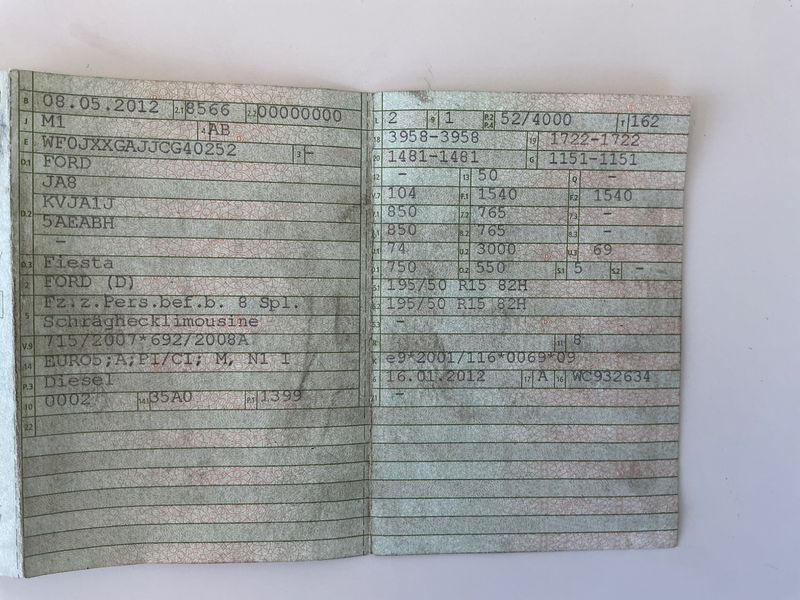 B 08.05.2012 2.1 8566 2.2 00000000
J M1 4 AB
E WF0JXXGAJJCG40252 3 -
D.1 FORD
JA8
D.2 KVJA1J
5AEABH
-
D.3 Fiesta
2 FORD (D)
5 Fz.z.Pers.bef.b. 8 Spl.
Schräghecklimousine
V.9 715/2007*692/2008A
14 EURO5;A;PI/CI; M, N1 I
P.3 Diesel
10 0002 14.1 35A0 P.1 1399
22
L 2 9 1 P.2 P.4 52/4000 T 162
18 3958-3958 19 1722-1722
20 1481-1481 G 1151-1151
12 - 13 50 Q -
V.7 104 F.1 1540 F.2 1540
7.1 850 7.2 765 7.3 -
8.1 850 8.2 765 8.3 -
U.1 74 U.2 3000 U.3 69
O.1 750 O.2 550 S.1 5 S.2 -
15.1 195/50 R15 82H
15.2 195/50 R15 82H
15.3 -
R 11 8
K e9*2001/116*0069*09
6 16.01.2012 17 A 16 WC932634
21 -